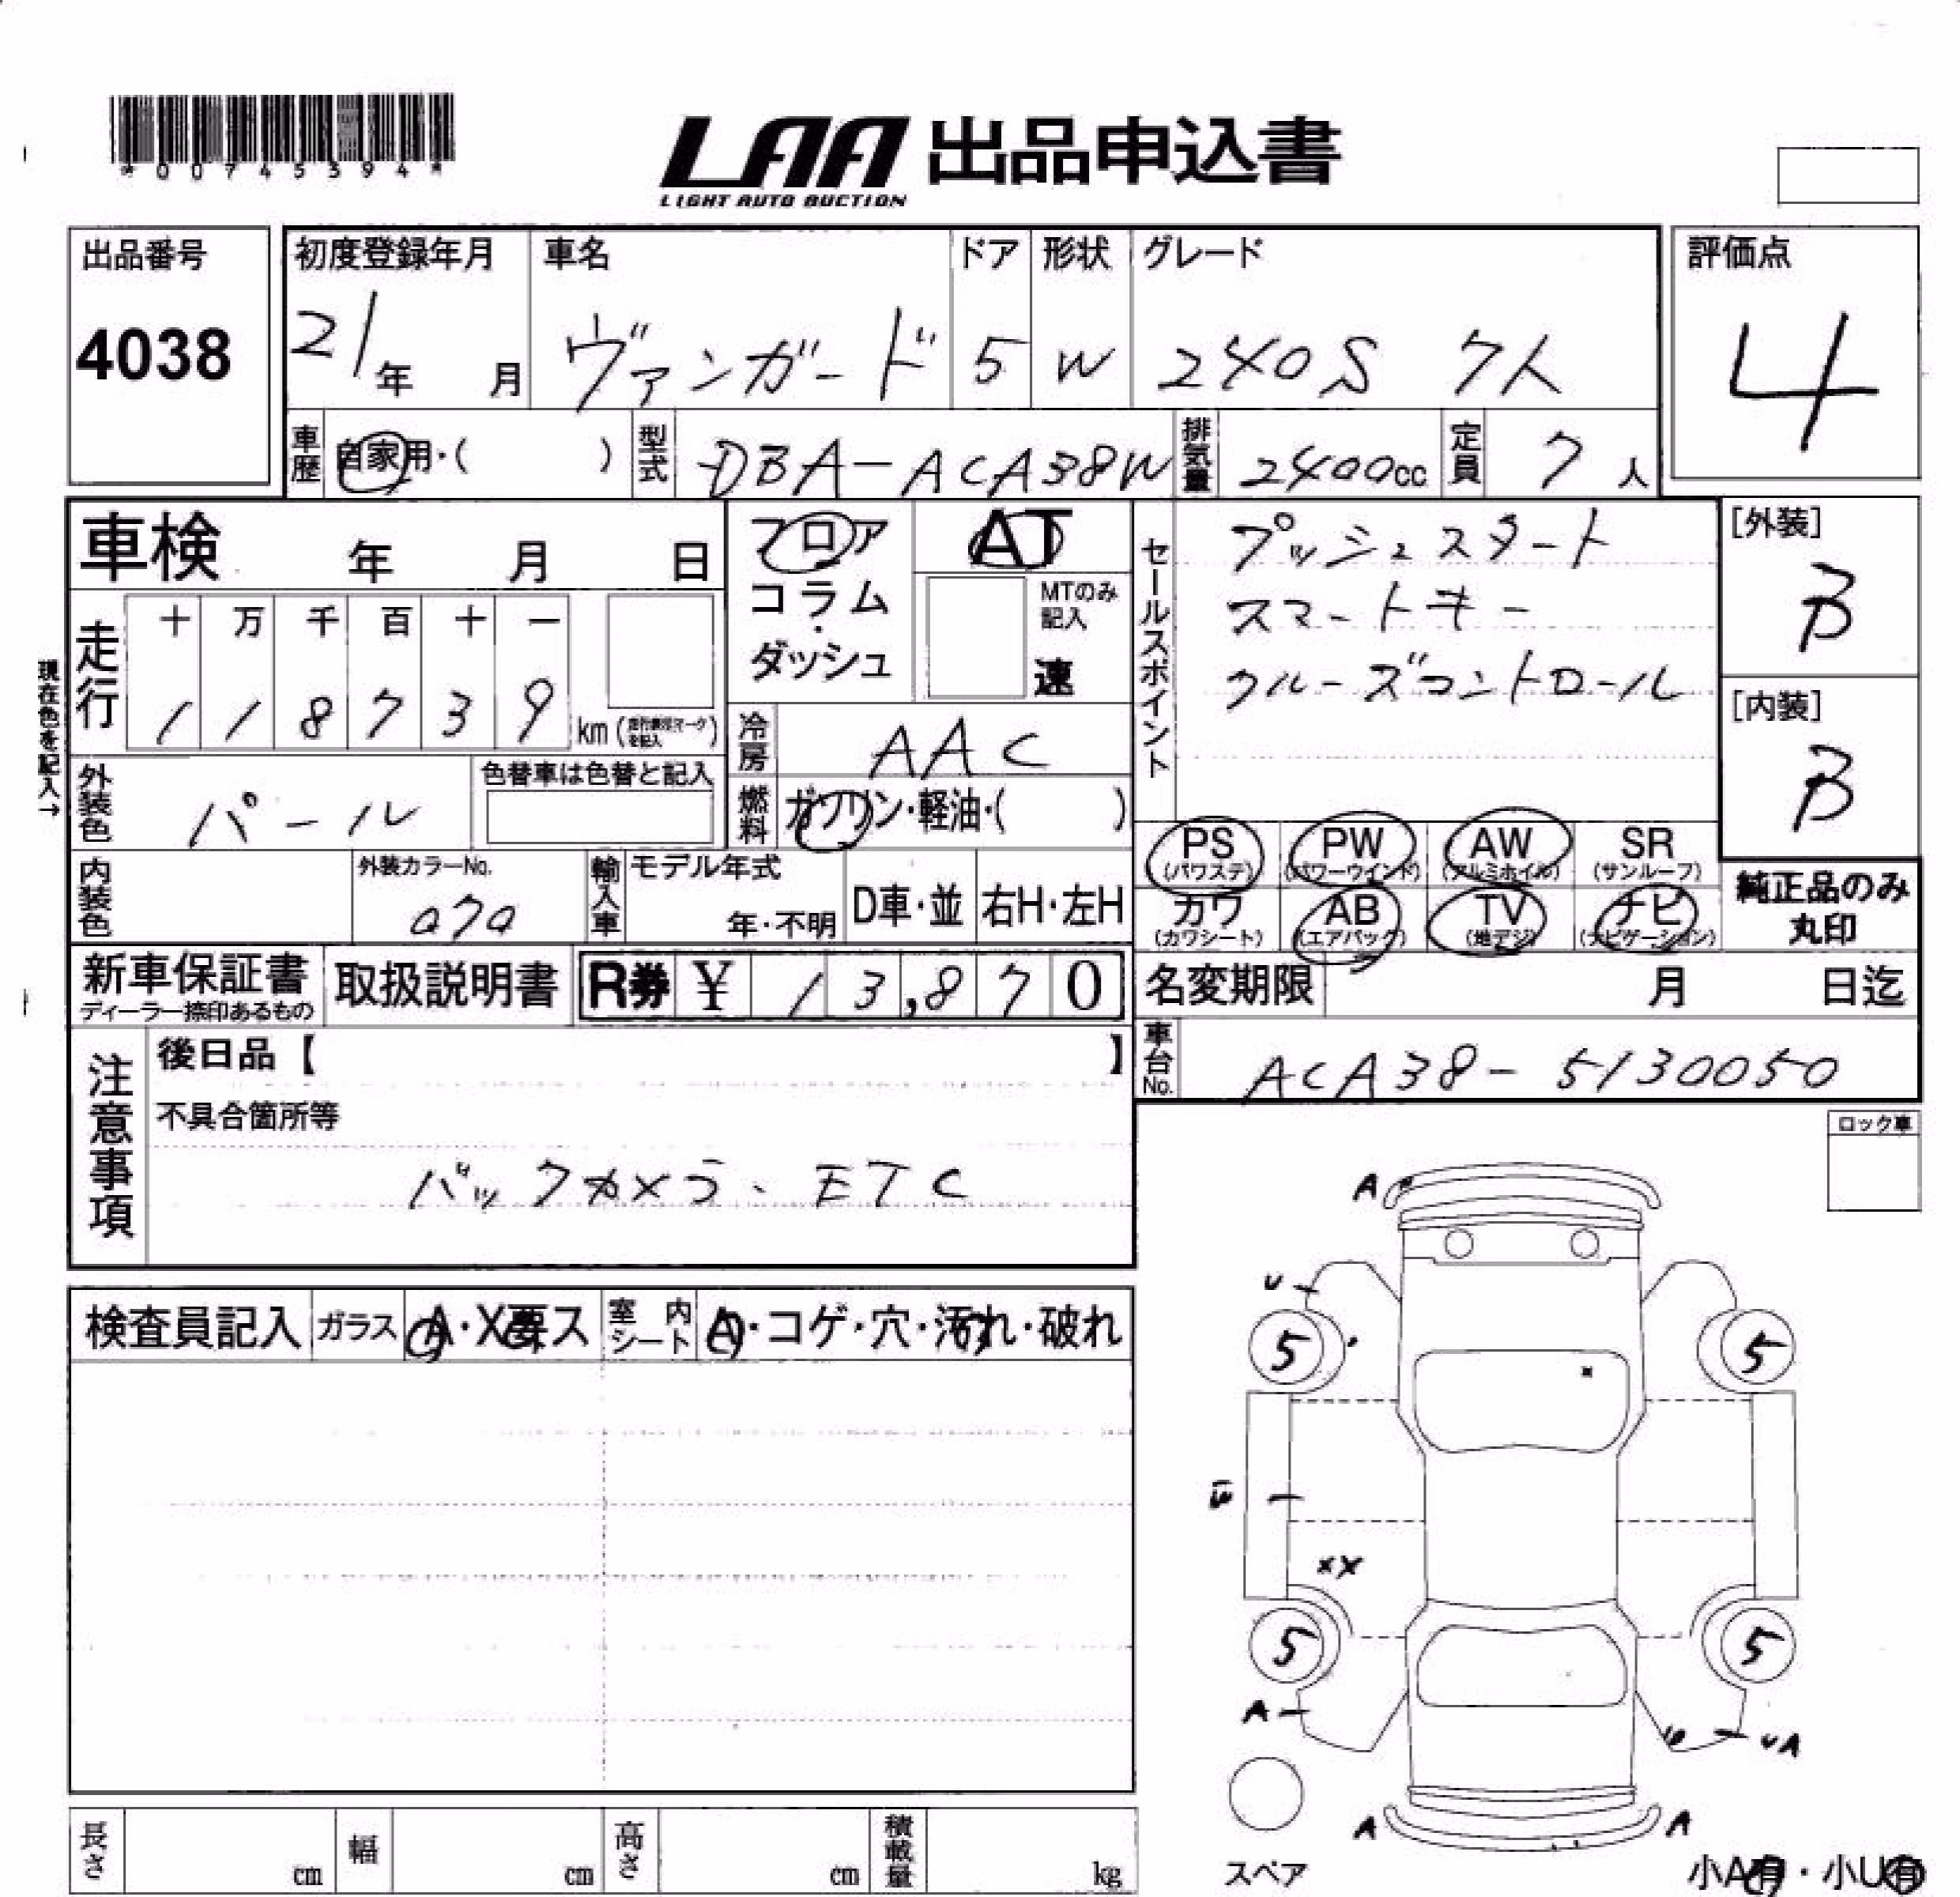 *00745594*
LAA 出品申込書
LIGHT AUTO AUCTION
出品番号
4038
初度登録年月
21年 月
車名
ヴァンガード
ドア
5
形状
W
グレード
240S 7人
評価点
4
車歴
自家用・( )
型式
DBA-ACA38W
排気量
2400cc
定員
7人
車検 年 月 日
現在色を記入→
走行
十 万 千 百 十 一
1 1 8 7 3 9 km
フロア
コラム
・
ダッシュ
AT
MTのみ
記入
速
冷房
AAC
燃料
ガソリン・軽油・( )
外装色
パール
色替車は色替と記入
内装色
外装カラーNo.
070
輸入車
モデル年式
年・不明
D車・並
右H・左H
セールスポイント
プッシュスタート
スマートキー
クルーズコントロール
[外装]
B
[内装]
B
PS
(パワステ)
PW
(パワーウインド)
AW
(アルミホイル)
SR
(サンルーフ)
カワ
(カワシート)
AB
(エアバック)
TV
(地デジ)
ナビ
(ナビゲーション)
純正品のみ
丸印
新車保証書
ディーラー捺印あるもの
取扱説明書
R券 ¥ 13,870
名変期限 月 日迄
車台No.
ACA38-5130050
注意事項
後日品【 】
不具合箇所等
バックカメラ、ETC
検査員記入
ガラス
A・X要ス
室内
シート
A・コゲ・穴・汚れ・破れ
ロック車
A
U
5
5
XX
5
5
A
UA
A
A
スペア
小A有・小U有
長さ cm
幅 cm
高さ cm
積載量 kg